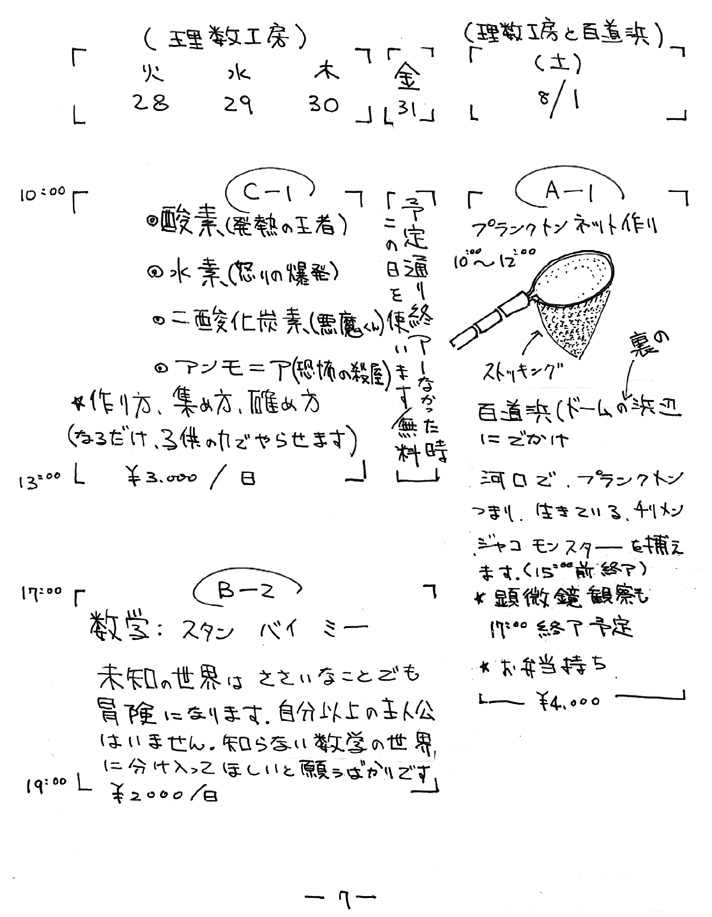 (理数工房)
火 水 木
28 29 30
金
31
(理数工房と百道浜)
(土)
8/1
10:00
C-1
◎酸素(発熱の王者)
◎水素(怒りの爆発)
◎二酸化炭素(悪魔くん)
◎アンモニア(恐怖の殺屋)
*作り方、集め方、確め方
(なるだけ、子供の力でやらせます)
13:00
¥3.000/日
予定通り終アーなかった時
この日を使います 無料
A-1
プランクトンネット作り
10:00〜12:00
ストッキング
裏の
百道浜(ドームの浜辺
にでかけ
河口で、プランクトン
つまり、生きている、チリメン
ジャコモンスターを捕え
ます。(15:00前終了)
*顕微鏡観察も
17:00 終了予定
*お弁当持ち
¥4.000
17:00
B-2
数学: スタン バイ ミー
未知の世界は ささいなことでも
冒険になります。自分以上の主人公
はいません。知らない数学の世界
に分け入ってほしいと願うばかりです
19:00
¥2000/日
-7-